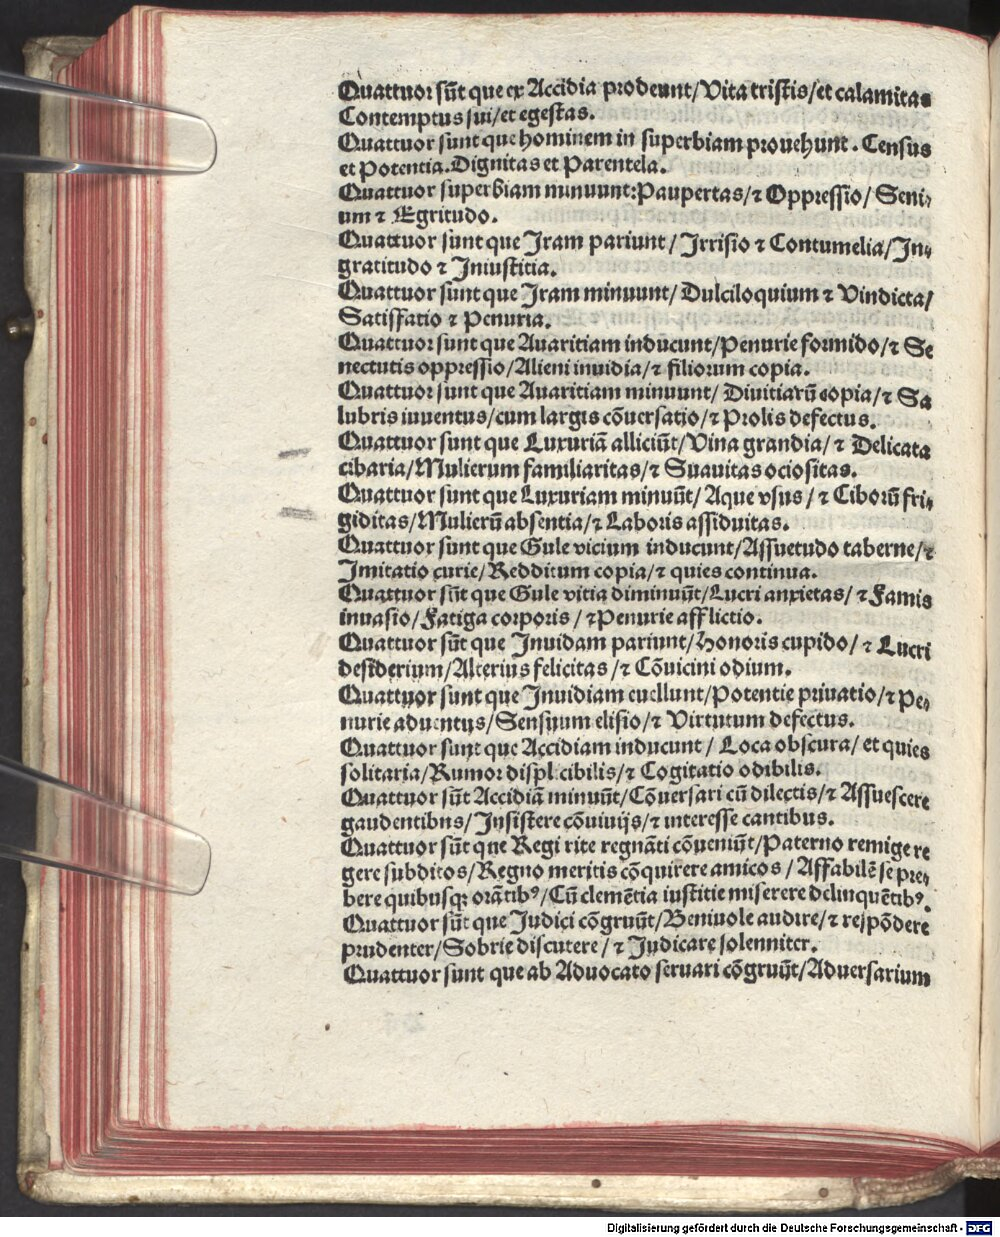 Quattuor sũt que ex Accidia prodeunt/Vita tristis/et calamitas
Contemptus sui/et egestas.
Quattuor sunt que hominem in superbiam prouehunt. Census
et Potentia. Dignitas et Parentela.
Quattuor superbiam minuunt: Paupertas/⁊ Oppressio/Seni⸗
um ⁊ Egritudo.
Quattuor sunt que Iram pariunt/Irrisio ⁊ Contumelia/In⸗
gratitudo ⁊ Iniustitia.
Quattuor sunt que Iram minuunt/Dulciloquium ⁊ Vindicta/
Satisfatio ⁊ Penuria.
Quattuor sunt que Auaritiam inducunt/Penurie formido/⁊ Se
nectutis oppressio/Alieni inuidia/⁊ filiorum copia.
Quattuor sunt que Auaritiam minuunt/Diuitiarũ copia/⁊ Sa
lubris iuuentus/cum largis cõuersatio/⁊ Prolis defectus.
Quattuor sunt que Luxuriã alliciũt/Vina grandia/⁊ Delicata
cibaria/Mulierum familiaritas/⁊ Suauitas ociositas.
Quattuor sunt que Luxuriam minuũt/Aque vsus/⁊ Ciborũ fri⸗
giditas/Mulierũ absentia/⁊ Laboris assiduitas.
Quattuor sunt que Gule vicium inducunt/Assuetudo taberne/⁊
Imitatio curie/Redditum copia/⁊ quies continua.
Quattuor sũt que Gule vitia diminuũt/Lucri anxietas/⁊ Famis
inuasio/Fatiga corporis/⁊ Penurie afflictio.
Quattuor sũt que Inuidam pariunt/Honoris cupido/⁊ Lucri
desiderium/Alterius felicitas/⁊ Cõuicini odium.
Quattuor sunt que Inuidiam euellunt/Potentie priuatio/⁊ Pe⸗
nurie aduentus/Sensuum elisio/⁊ Virtutum defectus.
Quattuor sunt que Accidiam inducunt/Loca obscura/et quies
solitaria/Rumor displicibilis/⁊ Cogitatio odibilis.
Quattuor sũt Accidiã minuũt/Cõuersari cũ dilectis/⁊ Assuescere
gaudentibus/Insistere cõuiuijs/⁊ interesse cantibus.
Quattuor sũt que Regi rite regnãti cõueniũt/Paterno remige re
gere subditos/Regno meritis cõquirere amicos/Affabilẽ se pre⸗
bere quibusqꝫ orãtibꝰ/Cũ clemẽtia iustitie miserere delinquẽtibꝰ.
Quattuor sũt que Iudici cõgruũt/Beniuole audire/⁊ respõdere
prudenter/Sobrie discutere/⁊ Iudicare solenniter.
Quattuor sunt que ab Aduocato seruari cõgruũt/Aduersarium
Digitalisierung gefördert durch die Deutsche Forschungsgemeinschaft - DFG